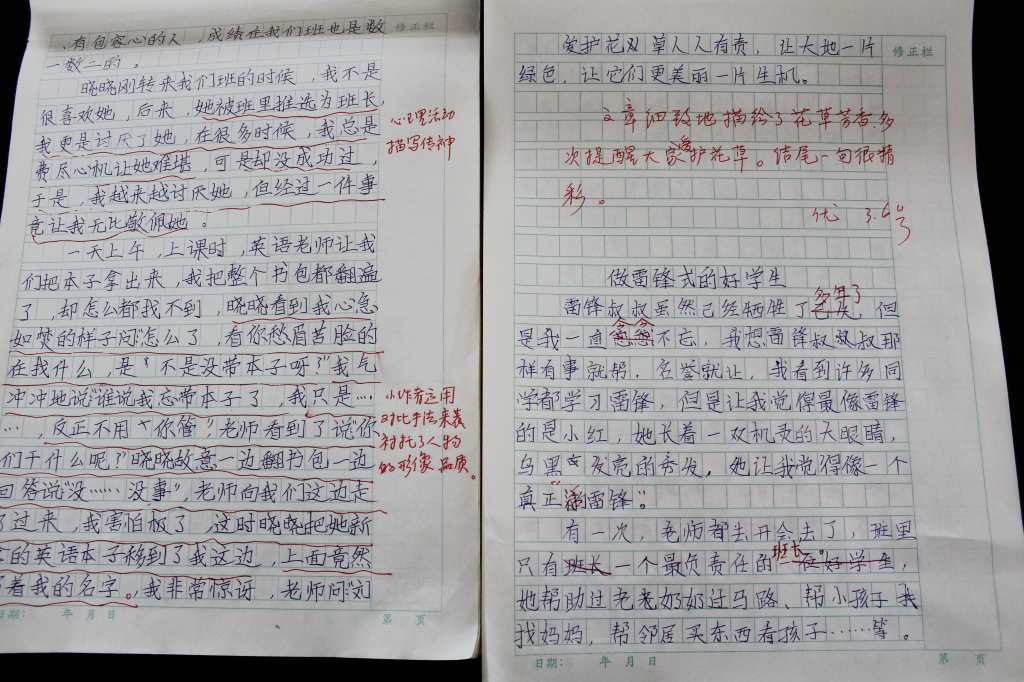 修正栏
、有包容心的人，成绩在我们班也是数
一数二的。
晓晓刚转来我们班的时候，我不是
很喜欢她，后来，她被班里推选为班长，
我更是讨厌了她，在很多时候，我总是
费尽心机让她难堪，可是却没成功过，
于是，我越来越讨厌她，但经过一件事
竟让我无比敬佩她。
心理活动
描写传神
一天上午，上课时，英语老师让我
们把本子拿出来，我把整个书包都翻遍
了，却怎么都找不到，晓晓看到我心急
如焚的样子问怎么了，看你愁眉苦脸的
在找什么，是“不是没带本子呀？”我气
冲冲地说“谁说我忘带本子了，我只是……
……，反正不用“你管”，老师看到了说“你
们干什么呢？”晓晓故意一边翻书包一边
回答说“没……没事”，老师向我们这边走
了过来，我害怕极了，这时晓晓把她新
的英语本子移到了我这边，上面竟然
着我的名字。我非常惊讶，老师问“刘
小作者运用
对比手法来表
衬托了人物
的形像品质。
日期： 年 月 日 第 页
修正栏
爱护花草人人有责，让大地一片
绿色，让它们更美丽一片生机。
文章细致地描绘了花草芳香，多
次提醒大家爱护花草。结尾一句很精
彩。
优 3.6号
做雷锋式的好学生
雷锋叔叔虽然已经牺牲了多年了，但
是我一直念念不忘，我想雷锋叔叔那
样有事就帮，名誉就让，我看到许多同
学都学习雷锋，但是让我觉得最像雷锋
的是小红，她长着一双机灵的大眼睛，
乌黑发亮的秀发，她让我觉得像一个
真正“活雷锋”。
有一次，老师都去开会去了，班里
只有班长一个最负责任的班长一夜好学生，
她帮助过老老奶奶过马路、帮小孩子找
找妈妈，帮邻居买东西看孩子……等。
日期： 年 月 日 第 页